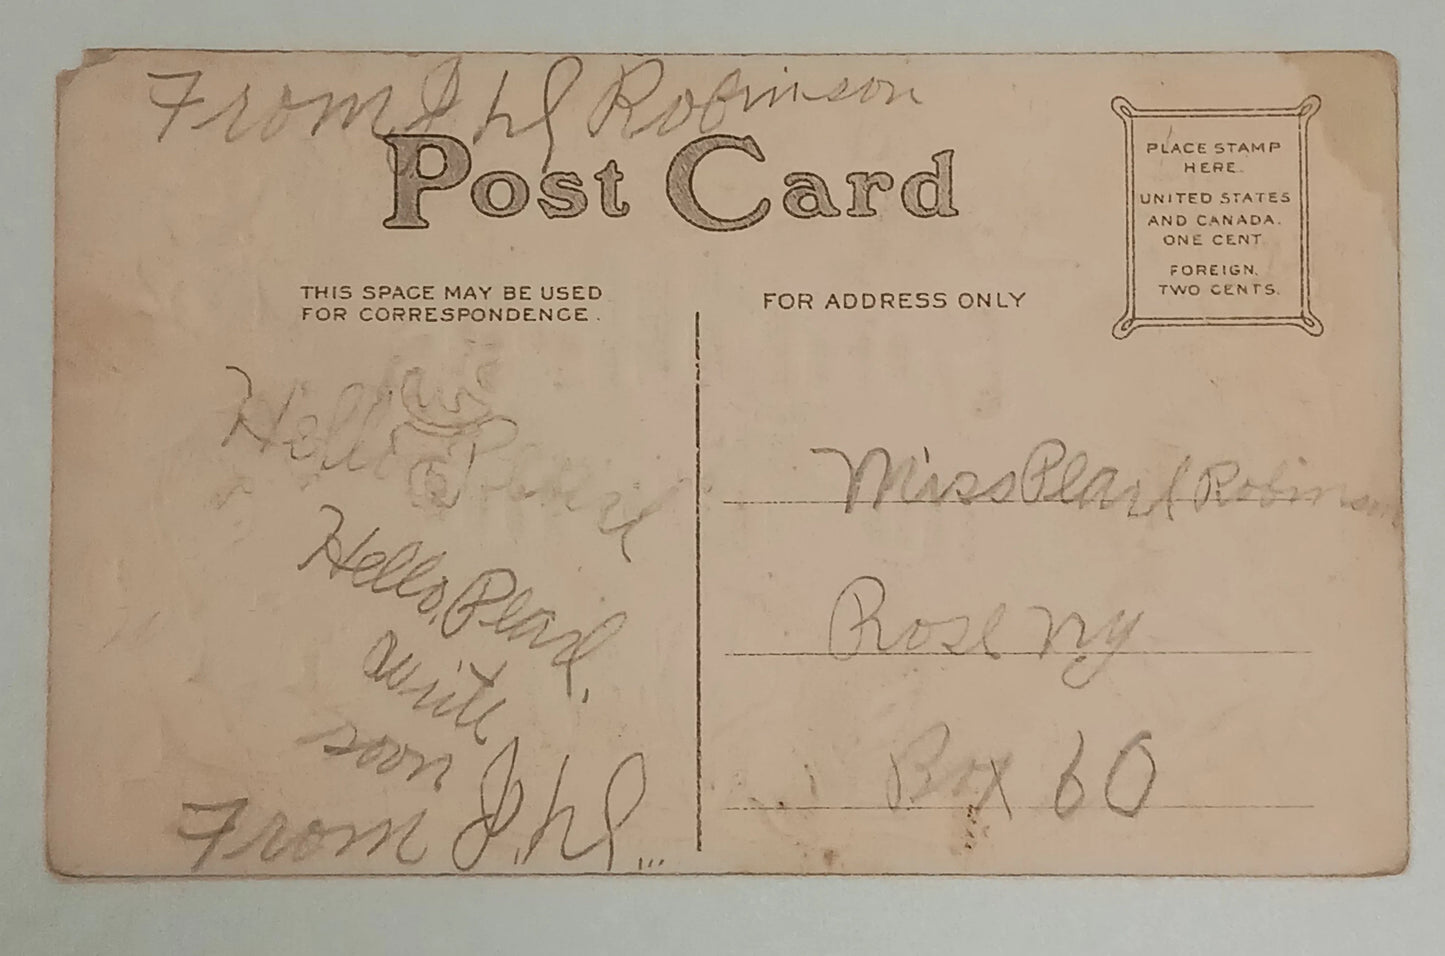 From Robinson
Post Card
PLACE STAMP
HERE.
UNITED STATES
AND CANADA.
ONE CENT
FOREIGN.
TWO CENTS.
THIS SPACE MAY BE USED
FOR CORRESPONDENCE.
FOR ADDRESS ONLY
Hello Pearl
Hello, Pearl.
write
soon
From
Miss Pearl Robinson
Rose NY
Box 60